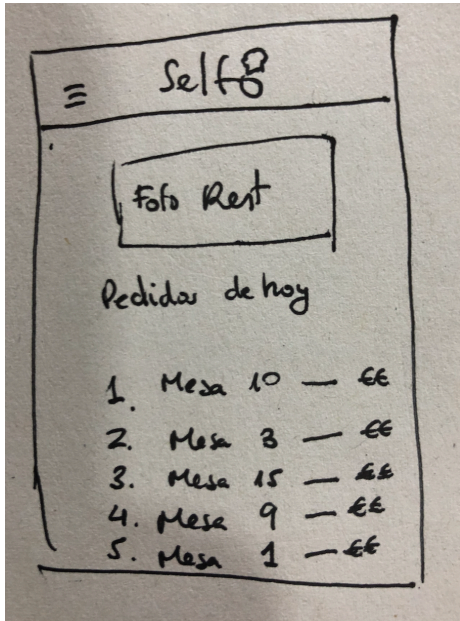 Self
Foto Rest
Pedidos de hoy
1. Mesa 10 — €€
2. Mesa 3 — €€
3. Mesa 15 — €€
4. Mesa 9 — €€
5. Mesa 1 — €€